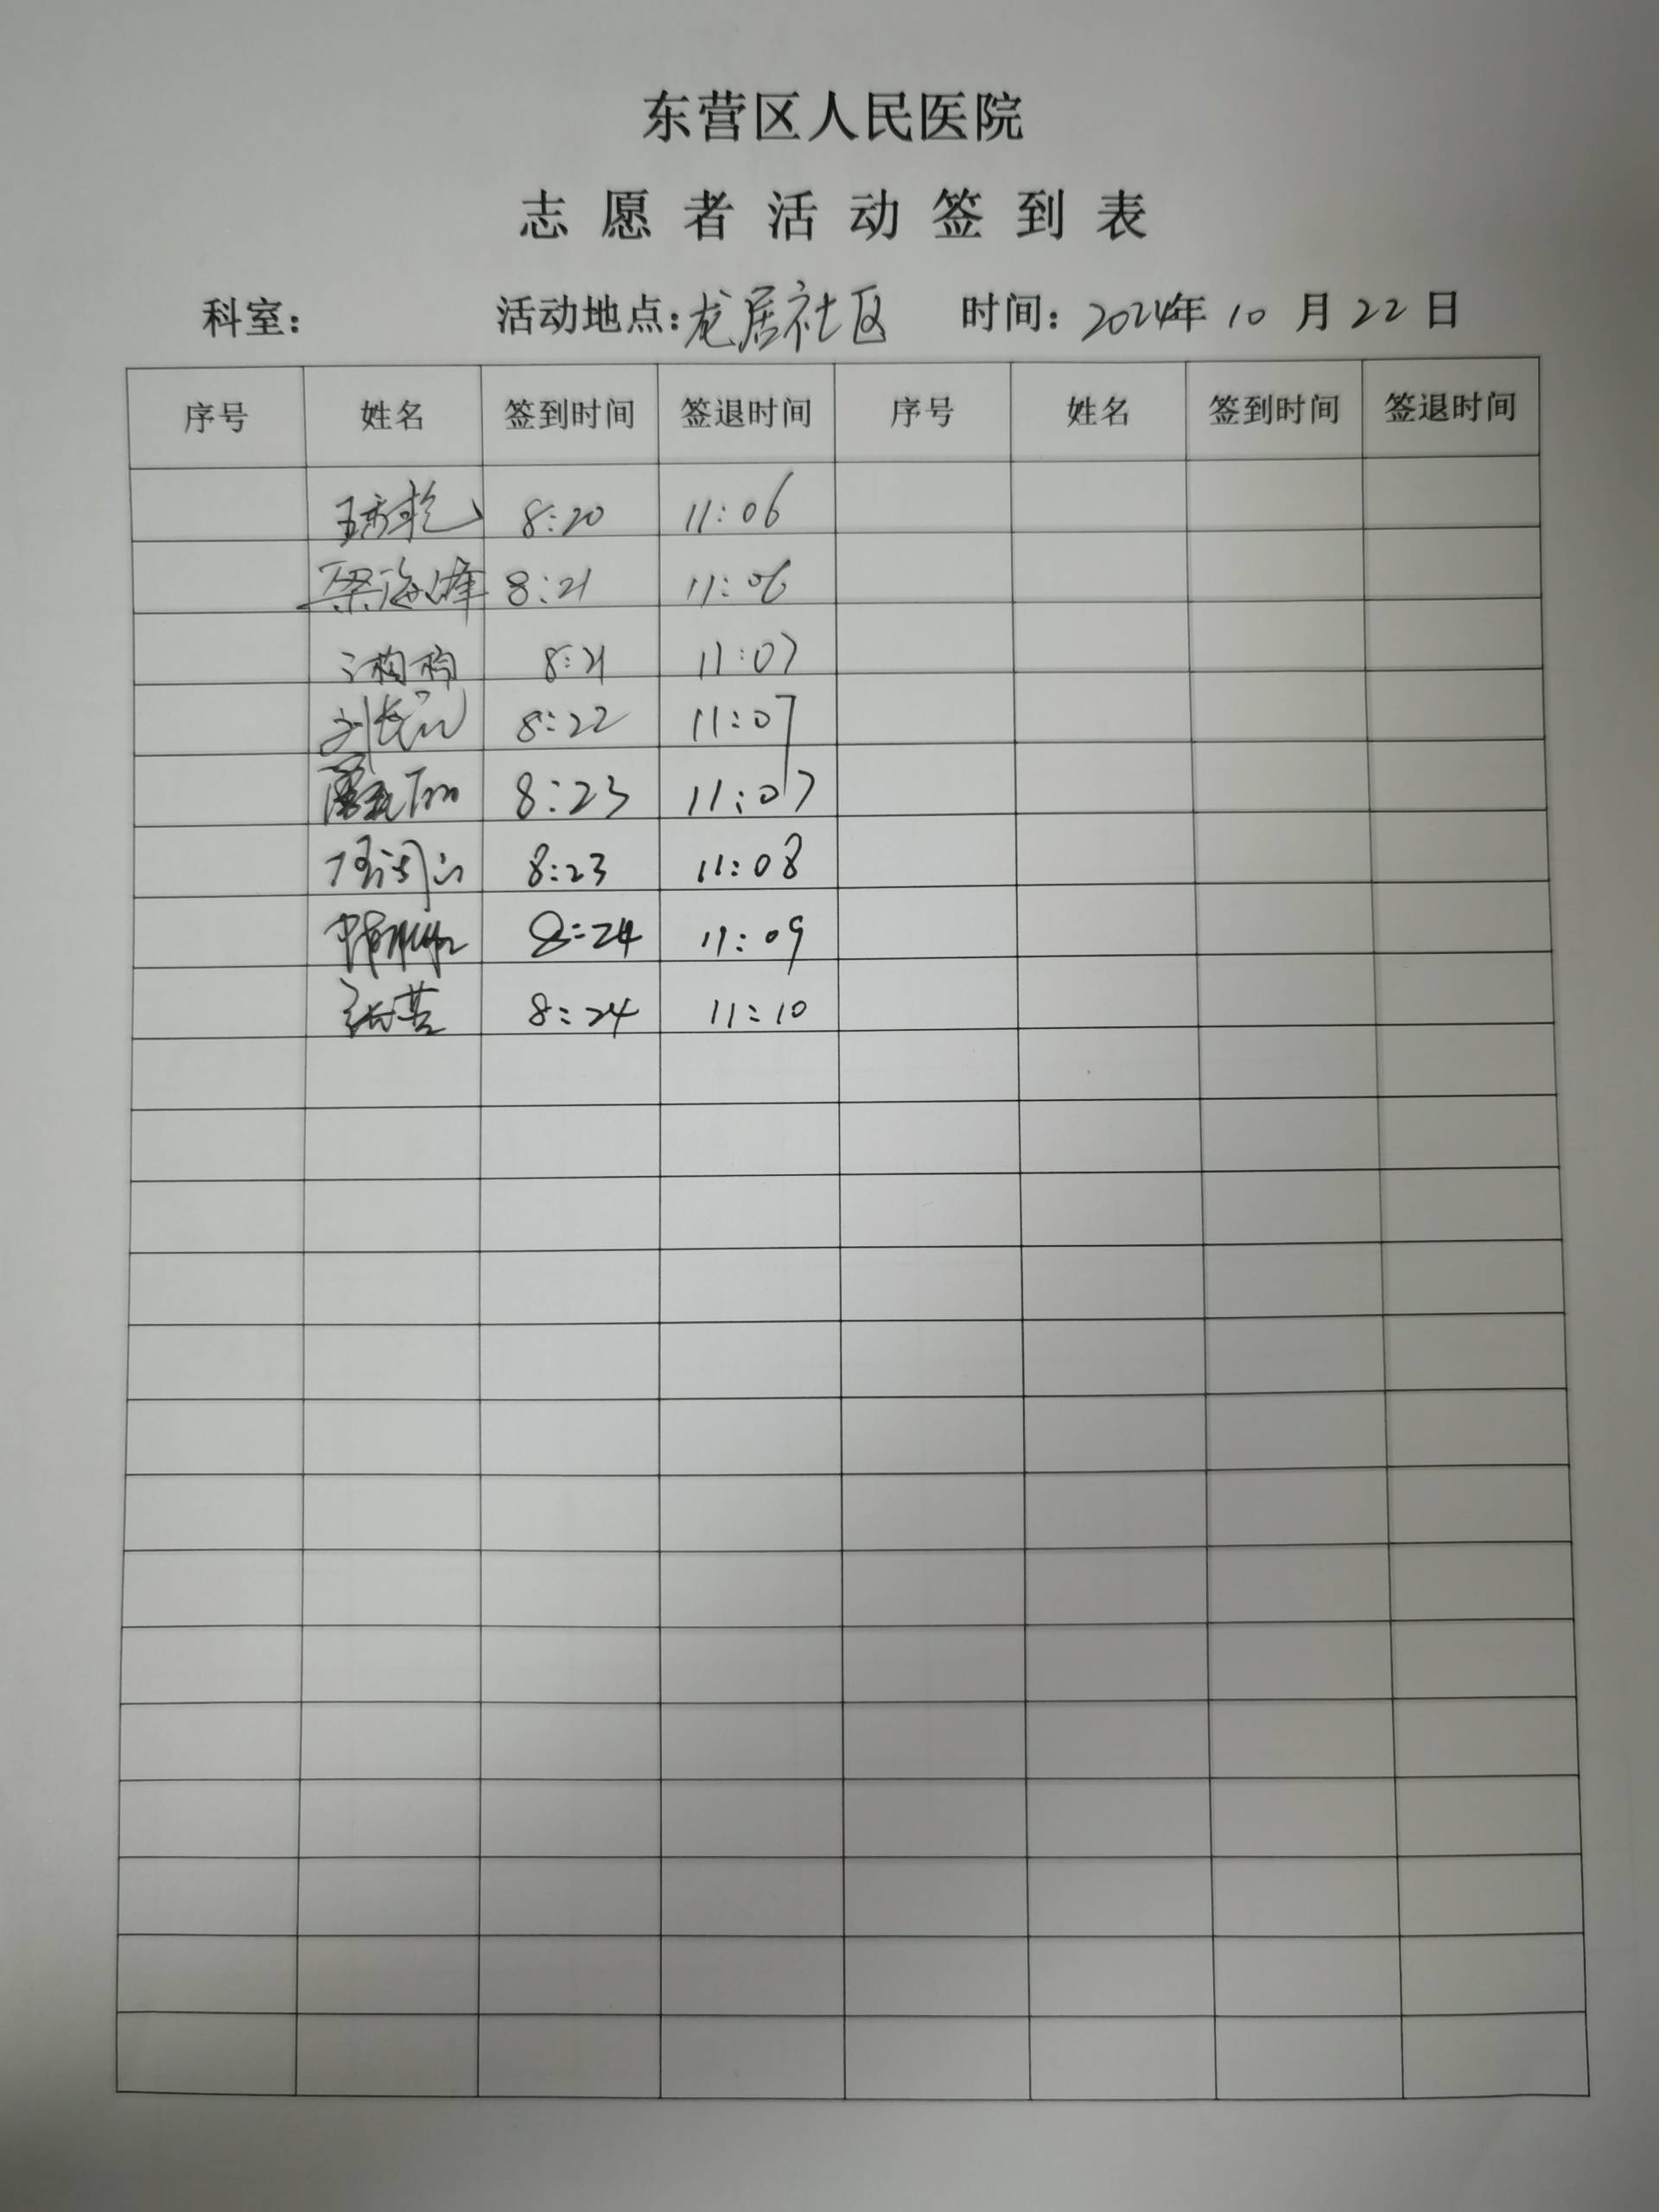 东营区人民医院
志愿者活动签到表
科室： 活动地点：龙居社区 时间：2024年10月22日
序号 姓名 签到时间 签退时间 序号 姓名 签到时间 签退时间
8:20 11:06
梁海峰 8:21 11:06
8:21 11:07
8:22 11:07
8:23 11:07
8:23 11:08
8:24 11:09
张营 8:24 11:10